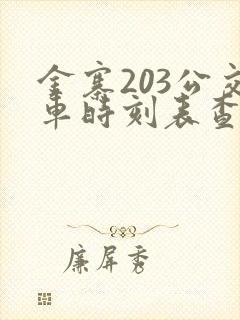 金寨203公交
车时刻表查
廉屏秀